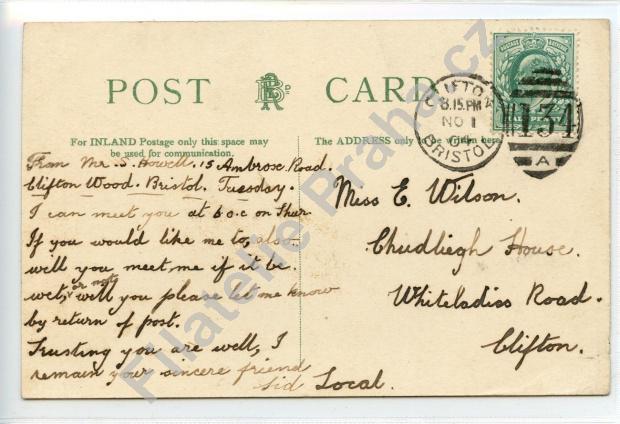 POST CARD
For INLAND Postage only this space may
be used for communication.
The ADDRESS only to be written here.
CLIFTON
8.15.PM
NO 1
04
BRISTOL
134
A
From Mr. S. Howell. 15 Ambrose Road.
Clifton Wood. Bristol. Tuesday.
I can meet you at 6 o.c on Thur
If you would like me to, also
will you meet me if it be
wet, or not, will you please let me know
by return of post.
Trusting you are well, I
remain your sincere friend
Sid
Miss E. Wilson.
Chudliegh House.
Whiteladiss Road.
Clifton.
Local.
Filatelie Praha.cz